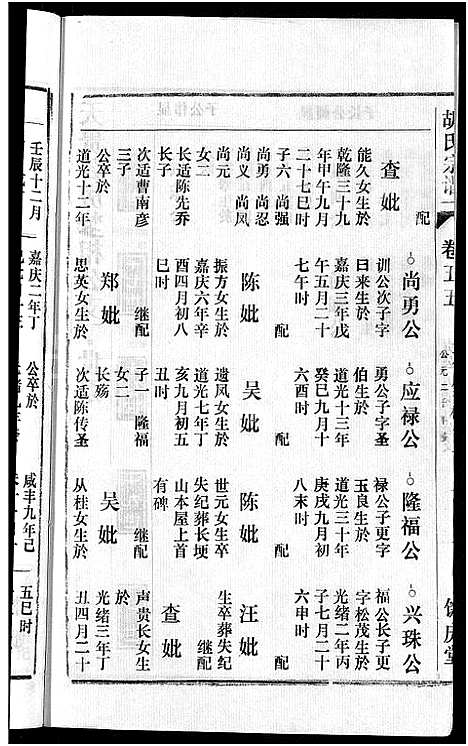 胡氏宗谱
卷五五
饶庆堂
尚勇公
训公次子字
日来生於
嘉庆三年戊
午五月二十
七午时
配
陈妣
振方女生於
嘉庆六年辛
酉四月初八
巳时
继配
郑妣
思英女生於
嘉庆二年丁
应禄公
勇公子字圣
伯生於
道光十三年
癸巳九月十
六酉时
配
吴妣
遗凤女生於
道光七年丁
亥九月初五
丑时
子一 隆福
女二
长殇
次适陈传圣
公卒於
隆福公
禄公子更字
玉良生於
道光三十年
庚戌九月初
八未时
配
陈妣
世元女生卒
失纪葬长埂
山本屋上首
有碑
继配
吴妣
从桂女生於
咸丰九年己
兴珠公
福公长子更
字松茂生於
光绪二年丙
子七月二十
六申时
配
汪妣
生卒葬失纪
继配
查妣
声贵长女生
於
光绪三年丁
丑四月二十
五巳时
配
查妣
能久女生於
乾隆三十九
年甲午九月
二十七巳时
子六 尚强
尚勇 尚忍
尚义 尚凤
尚元
女二
长适陈先乔
次适曹南彦
三子
公卒於
道光十二年
壬辰十二月